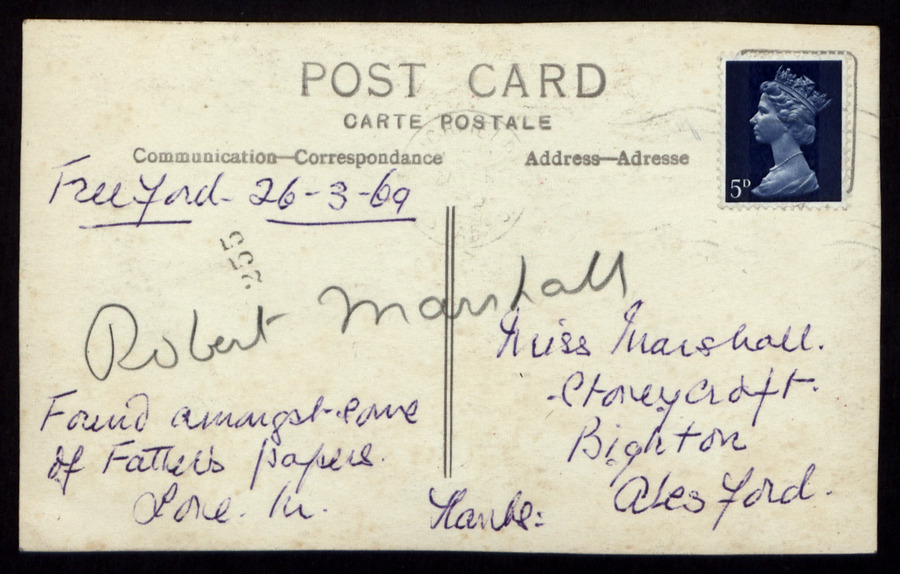 POST CARD
CARTE POSTALE
Communication—Correspondance
Address—Adresse
5D
Freeford - 26-3-69
255
Robert Marshall
Found amongst some
of Father's papers.
Love. M.
Miss Marshall.
Stoneycroft.
Bighton
Alesford.
Hants: